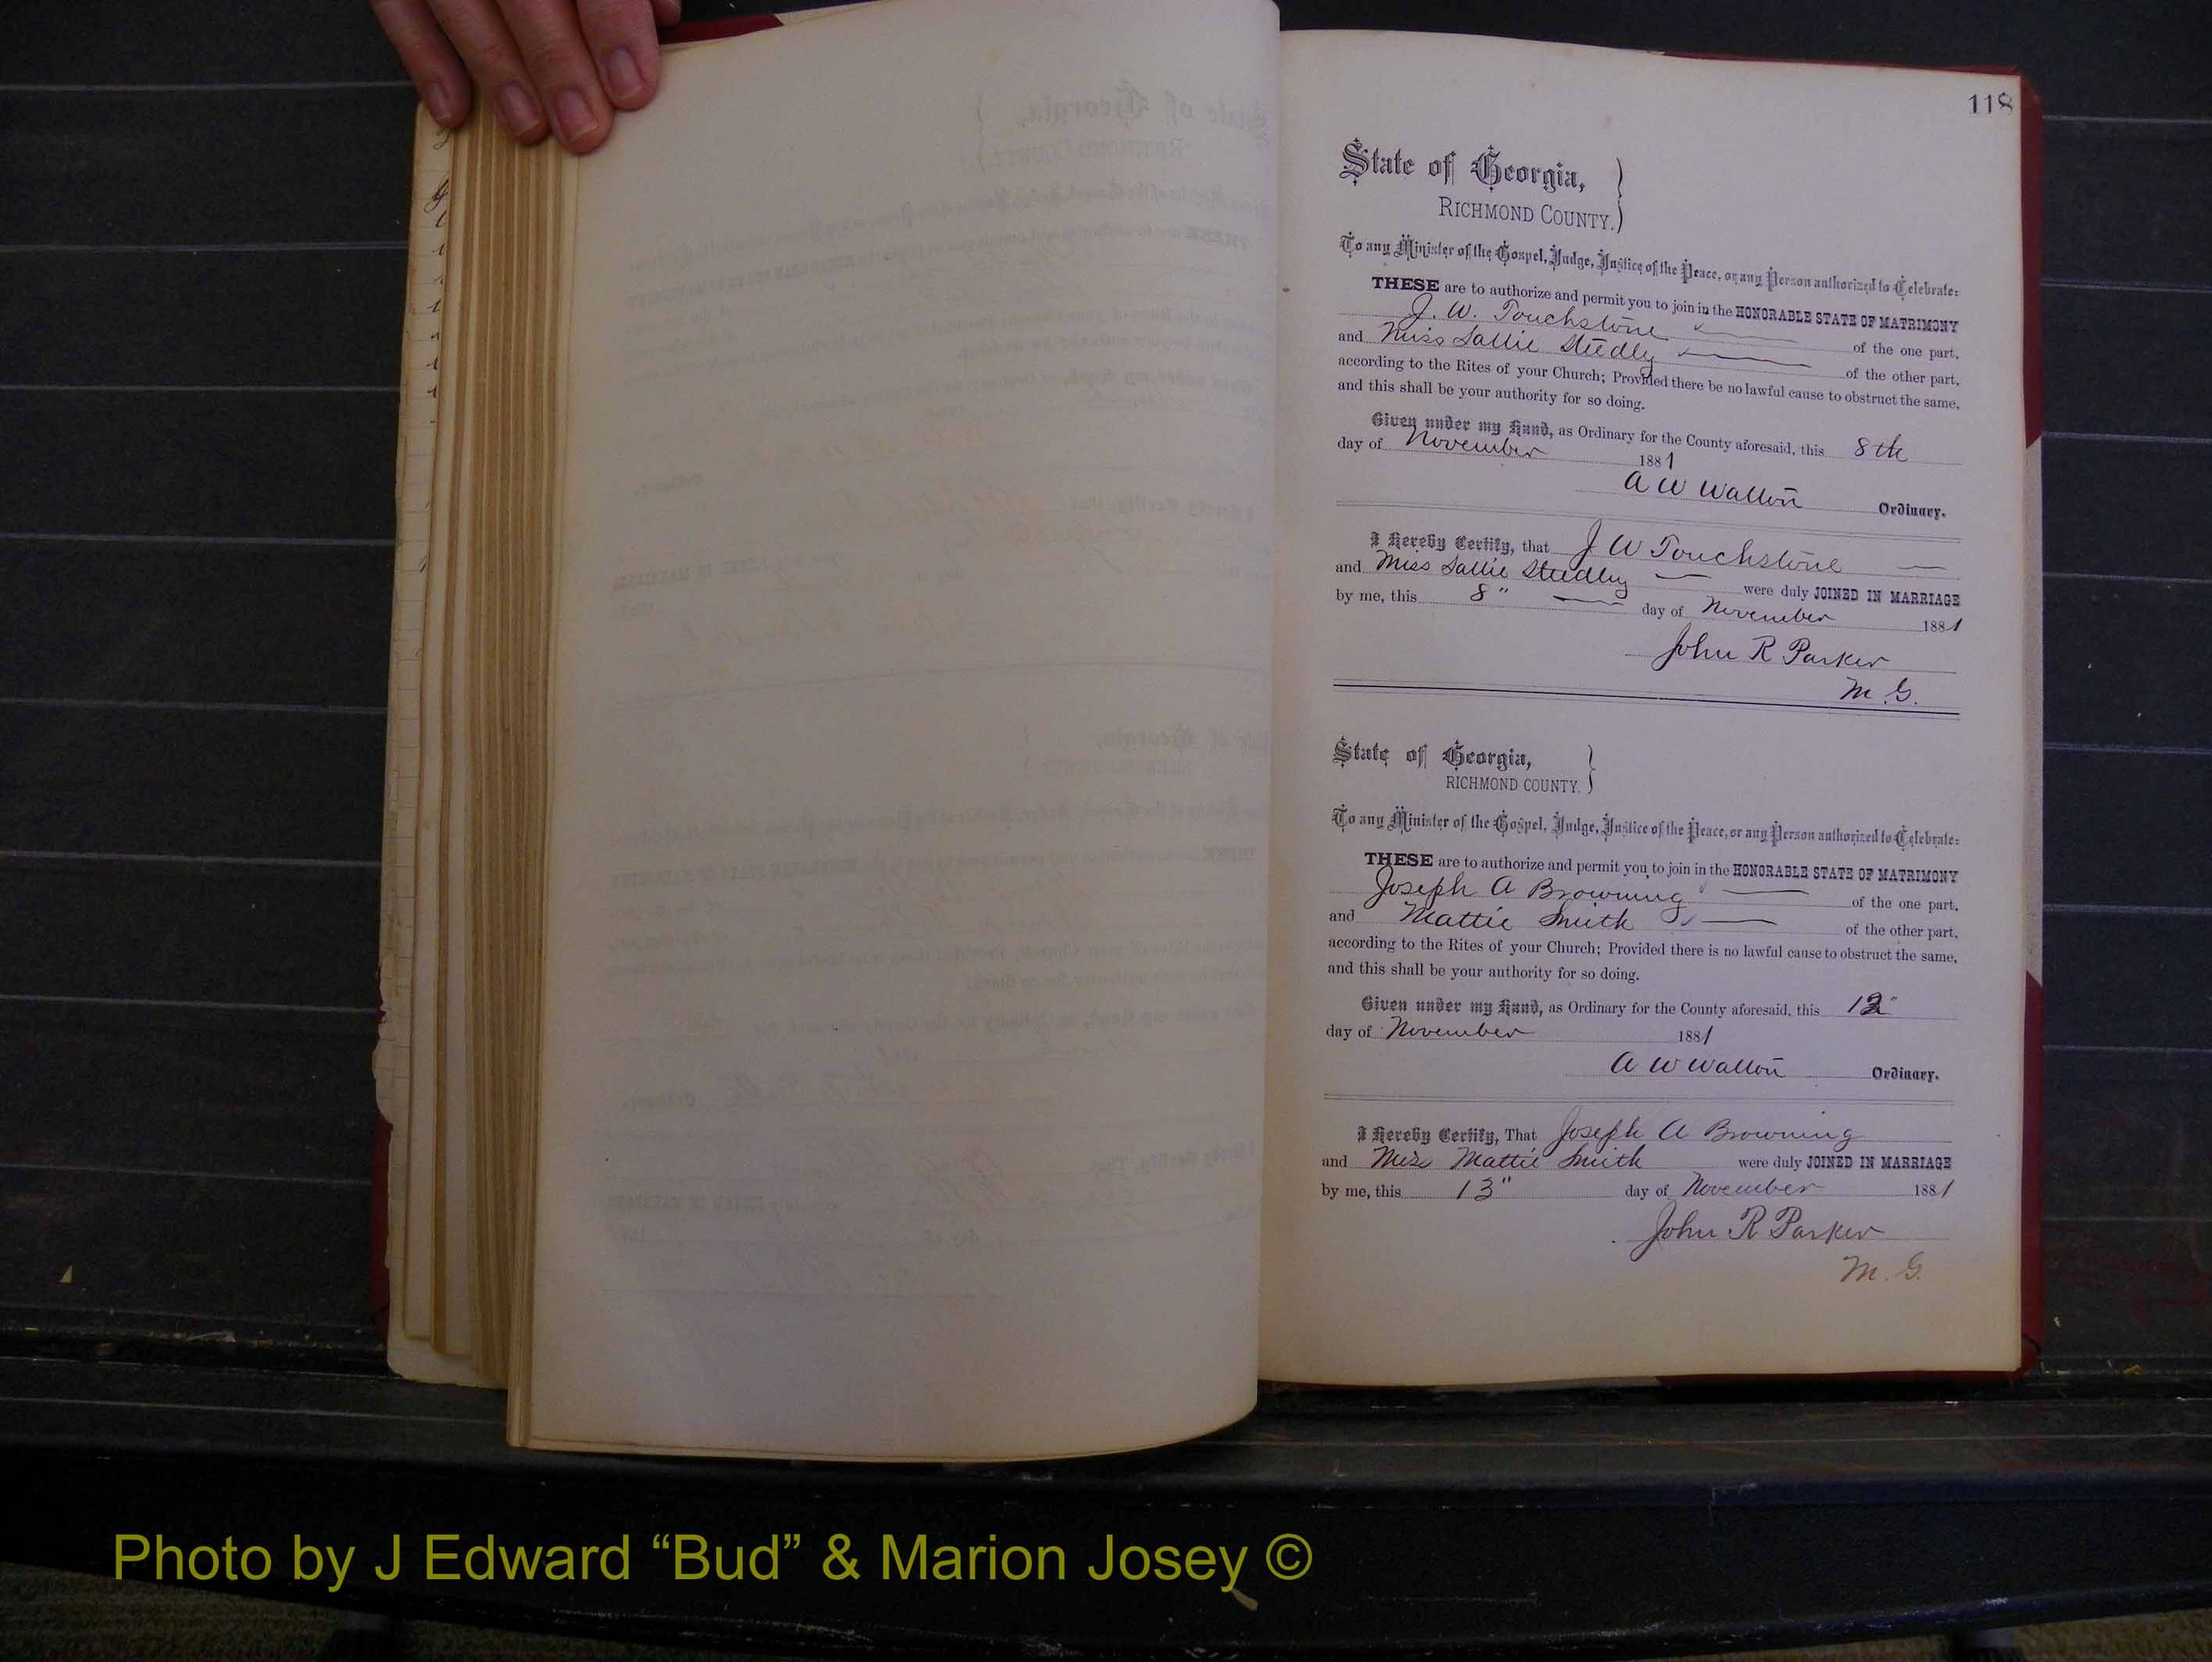 118
State of Georgia,
RICHMOND COUNTY.
To any Minister of the Gospel, Judge, Justice of the Peace, or any Person authorized to Celebrate:
THESE are to authorize and permit you to join in the HONORABLE STATE OF MATRIMONY
J. W. Touchstone of the one part,
and Miss Sallie Steedly of the other part,
according to the Rites of your Church; Provided there be no lawful cause to obstruct the same,
and this shall be your authority for so doing.
Given under my Hand, as Ordinary for the County aforesaid, this 8th
day of November 1881
A W Walton Ordinary.
I Hereby Certify, that J W Touchstone
and Miss Sallie Steedly were duly JOINED IN MARRIAGE
by me, this 8" day of November 1881
John R Parker
M. G.
State of Georgia,
RICHMOND COUNTY.
To any Minister of the Gospel, Judge, Justice of the Peace, or any Person authorized to Celebrate:
THESE are to authorize and permit you to join in the HONORABLE STATE OF MATRIMONY
Joseph A Browning of the one part,
and Mattie Smith of the other part,
according to the Rites of your Church; Provided there is no lawful cause to obstruct the same,
and this shall be your authority for so doing.
Given under my Hand, as Ordinary for the County aforesaid, this 12"
day of November 1881
A W Walton Ordinary.
I Hereby Certify, That Joseph A Browning
and Miss Mattie Smith were duly JOINED IN MARRIAGE
by me, this 13" day of November 1881
John R Parker
M. G.
Photo by J Edward “Bud” & Marion Josey ©